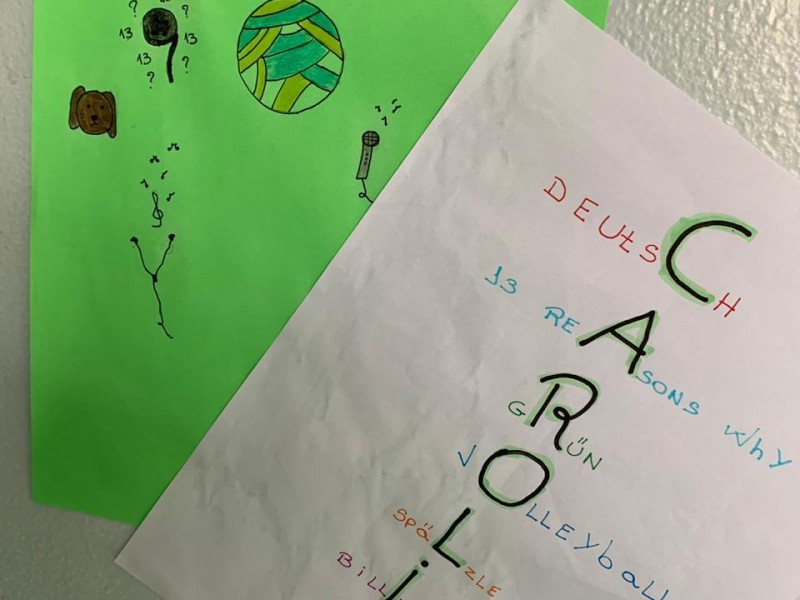 ?
13
?
13
13
?
?
DEUtSCH
13 REASONS Why
GRÜN
VOLLEybaLL
SPäLZLE
BiLLi